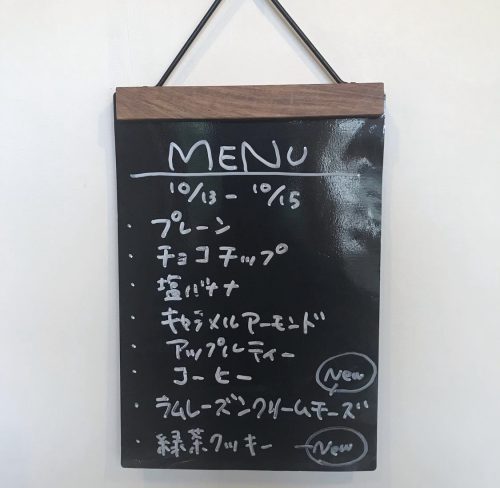 MENU
10/13 - 10/15
・プレーン
・チョコチップ
・塩バナナ
・キャラメルアーモンド
アップルティー
コーヒー
New
・ラムレーズンクリームチーズ
・緑茶クッキー New